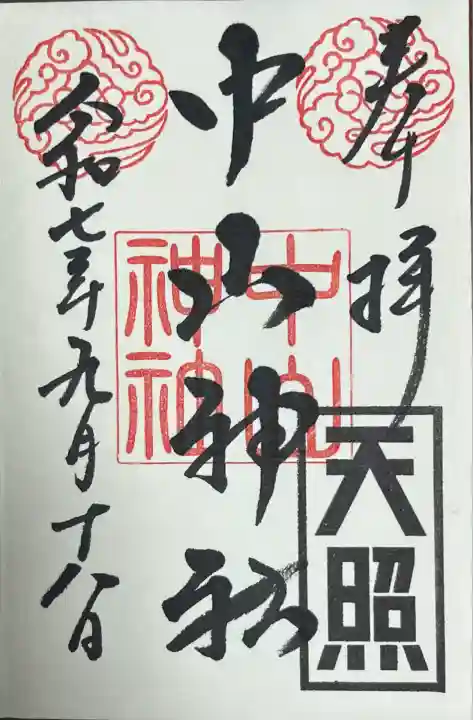 奉拝
天照
中山神社
中山神社
令和七年九月十八日